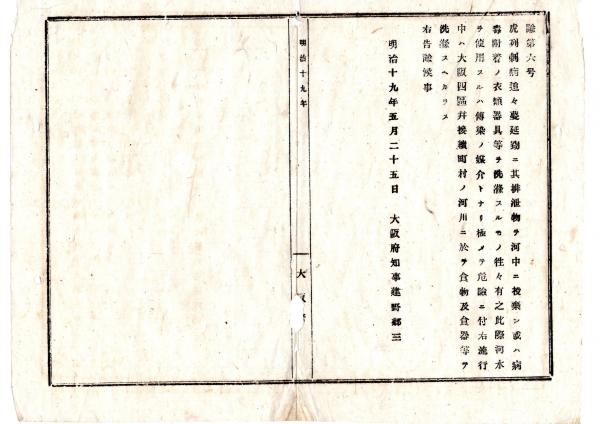 諭第六号
虎列剌病追々蔓延動ニ其排泄物ヲ河中ニ投棄シ或ハ病
毒附着ノ衣類器具等ヲ洗滌スルモノ往々有之此際河水
ヲ使用スルハ傳染ノ媒介トナリ極メテ危險ニ付右流行
中ハ大阪四區并接續町村ノ河川ニ於テ食物及食器等ヲ
洗滌スヘカラス
右告諭候事
明治十九年五月二十五日 大阪府知事建野郷三
明治十九年
大阪